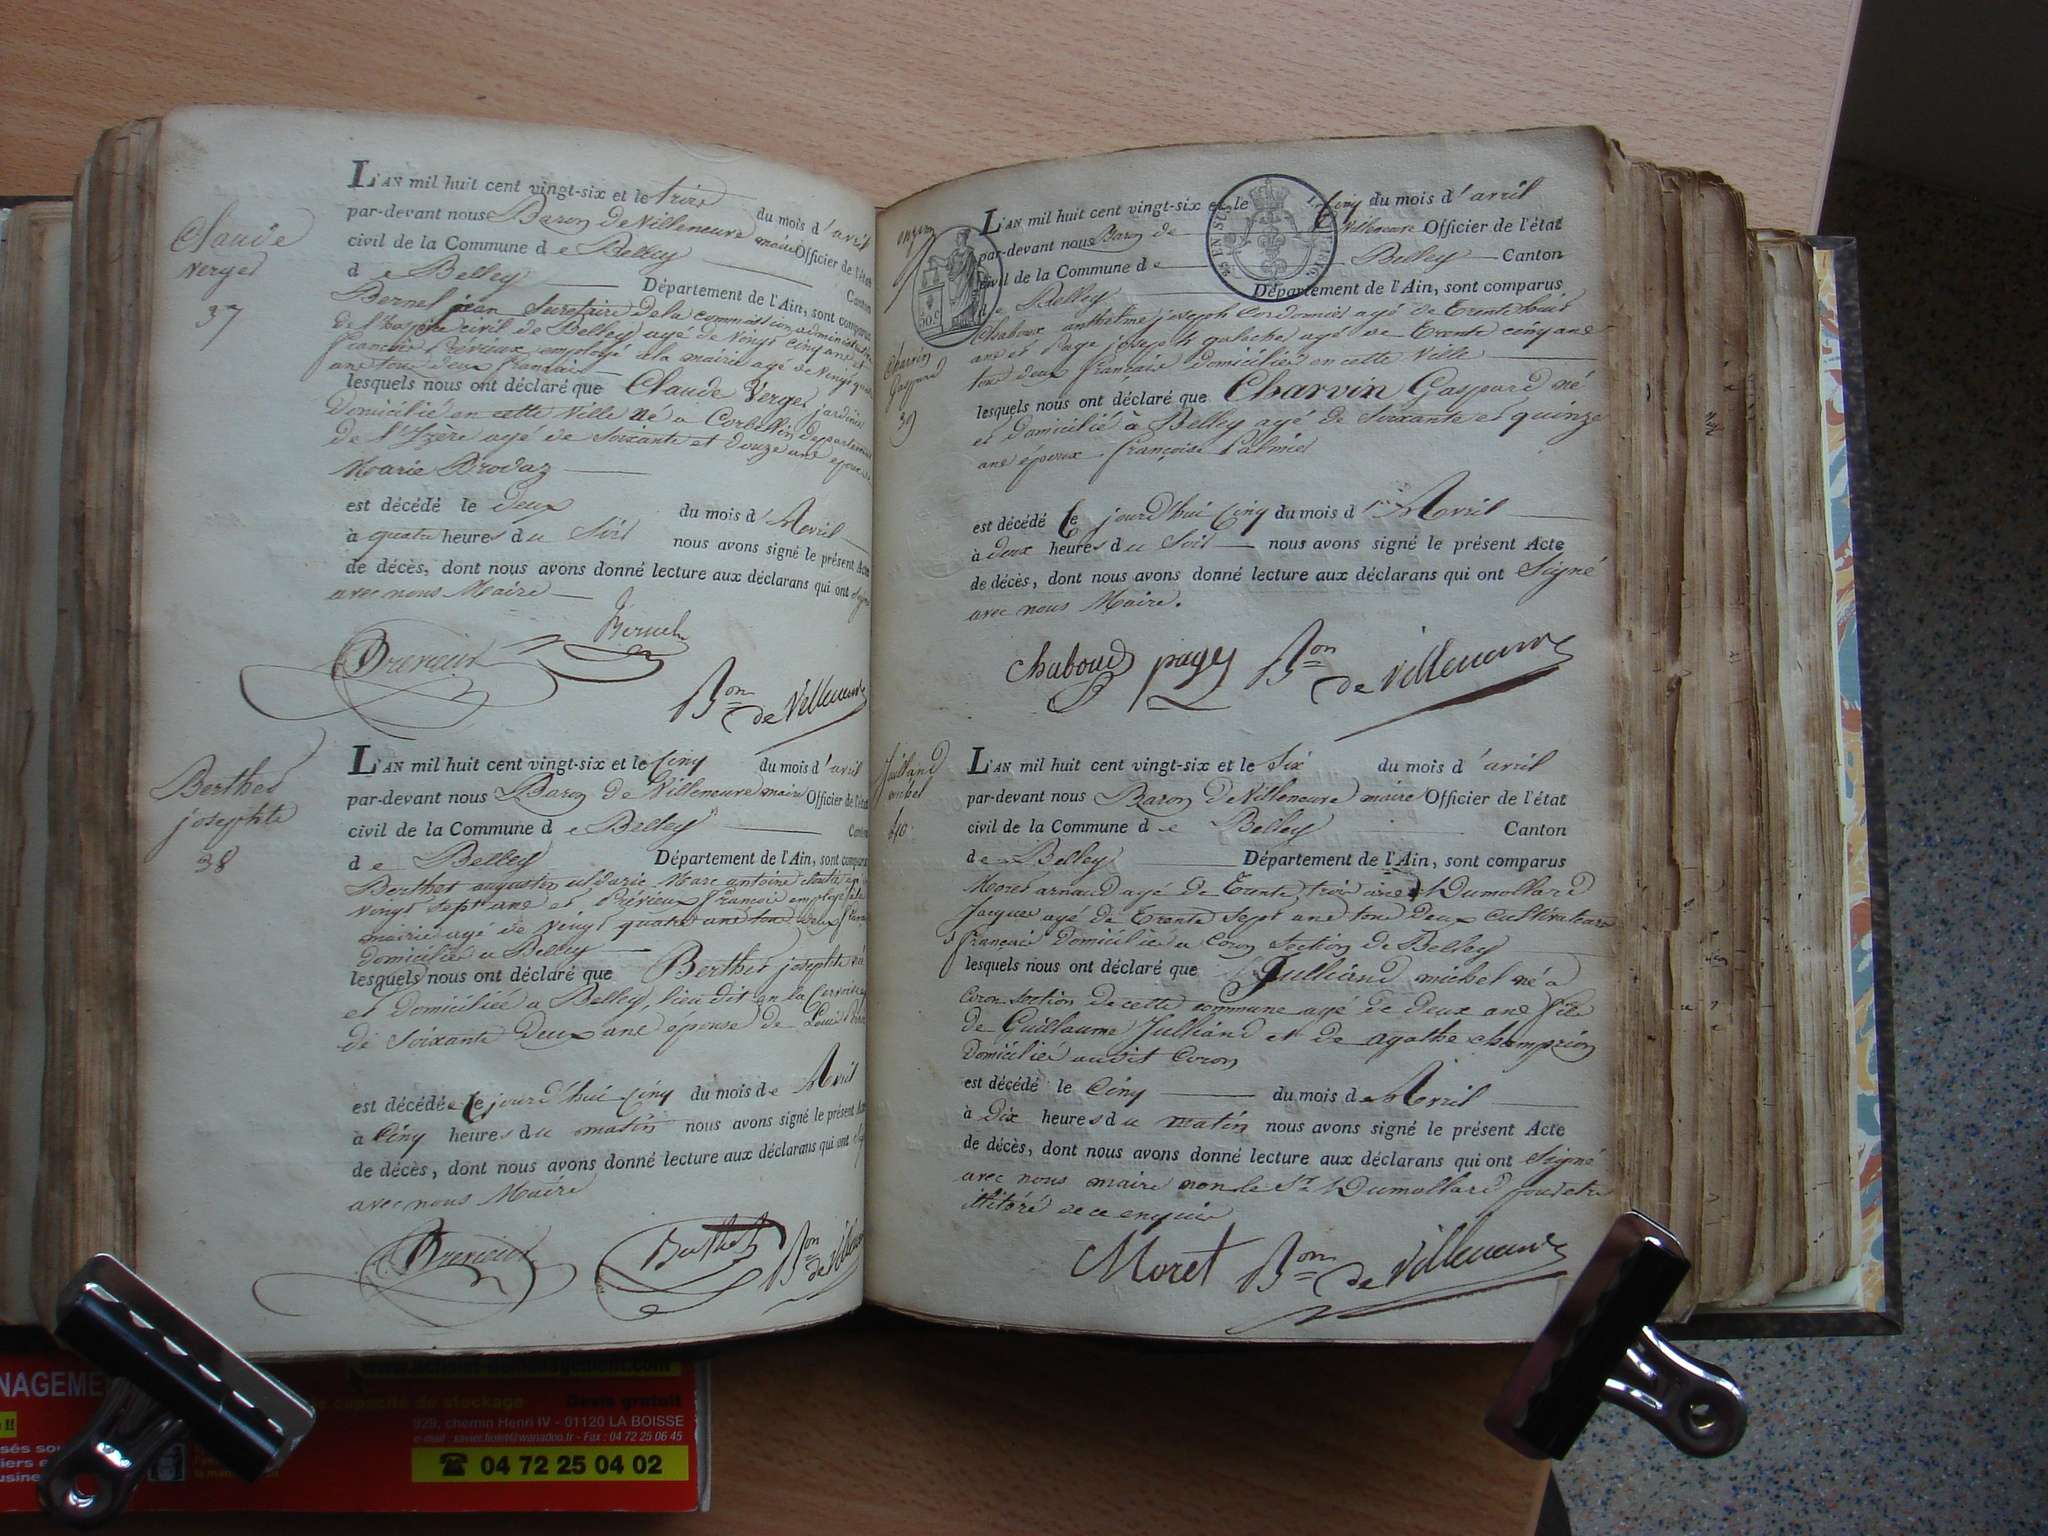 Claude
Verger
37
L'AN mil huit cent vingt-six et le trois du mois d'avril
par-devant nous Baron de Villeneuve maire Officier de l'état
civil de la Commune de Belley Canton
de Belley Département de l'Ain, sont comparus
Bernel jean Secretaire de la commission administrative
de l' civil de Belley agé de Vingt cinq ans et
françois Drévieux employé a la mairie agé de Vingt quatre
ans tous deux français
lesquels nous ont déclaré que Claude Verger jardinier
domicilié en cette Ville né a Corbellin departement
de l'Izère agé de Soixante et douze ans epoux de
Marie Brodaz
est décédé le deux du mois d'Avril
à quatre heures du Soir nous avons signé le présent Acte
de décès, dont nous avons donné lecture aux déclarans qui ont signé
avec nous Maire
Bernel
Drevieux
Bon de Villeneuve
Berthet
josephte
38
L'AN mil huit cent vingt-six et le Cinq du mois d'avril
par-devant nous Baron de Villeneuve maire Officier de l'état
civil de la Commune de Belley Canton
de Belley Département de l'Ain, sont comparus
Berthet augustin uldaric Marc antoine
Vingt sept ans et Drévieux françois employé a la
mairie agé de Vingt quatre ans tous deux français
domiciliés a Belley
lesquels nous ont déclaré que Berthet josephte née
et domiciliée a Belley, lieu dit en la
de Soixante deux ans épouse de Louis
est décédée le jourd'hui Cinq du mois de Avril
à Cinq heures du matin nous avons signé le présent Acte
de décès, dont nous avons donné lecture aux déclarans qui ont
avec nous Maire
Drevieux Berthet Bon de Villeneuve
50 C
Charvin
Gaspard
39
L'AN mil huit cent vingt-six et le Cinq du mois d'avril
par-devant nous Baron de Villeneuve Officier de l'état
civil de la Commune de Belley Canton
de Belley Département de l'Ain, sont comparus
Chaboux anthelme joseph Cordonnier agé de Trente huit
ans et Page joseph agé de Trente cinq ans
tous deux français domiciliés en cette Ville
lesquels nous ont déclaré que Charvin Gaspard né
et domicilié à Belley agé de Soixante et quinze
ans époux françoise
est décédé le jourd'hui Cinq du mois d'Avril
à deux heures du Soir nous avons signé le présent Acte
de décès, dont nous avons donné lecture aux déclarans qui ont Signé
avec nous Maire.
page Bon de Villeneuve
michel
40
L'AN mil huit cent vingt-six et le Six du mois d'avril
par-devant nous Baron de Villeneuve maire Officier de l'état
civil de la Commune de Belley Canton
de Belley Département de l'Ain, sont comparus
Moret arnaud agé de Trente trois ans et Dumollard
Jacques agé de Trente Sept ans tous deux cultivateurs
français domiciliés a Coron Section de Belley
lesquels nous ont déclaré que Julliand michel né a
Coron Section de cette commune agé de deux ans fils
de Guillaume Julliand et de agathe champion
domiciliés audit Coron
est décédé le Cinq du mois de Avril
à Dix heures du matin nous avons signé le présent Acte
de décès, dont nous avons donné lecture aux déclarans qui ont Signé
avec nous maire non le Sr Dumollard pour etre
illitéré de ce enquis
Moret Bon de Villeneuve
NAGEME
capacité de stockage Devis gratuit
929, chemin Henri IV - 01120 LA BOISSE
Fax : 04 72 25 06 45
04 72 25 04 02